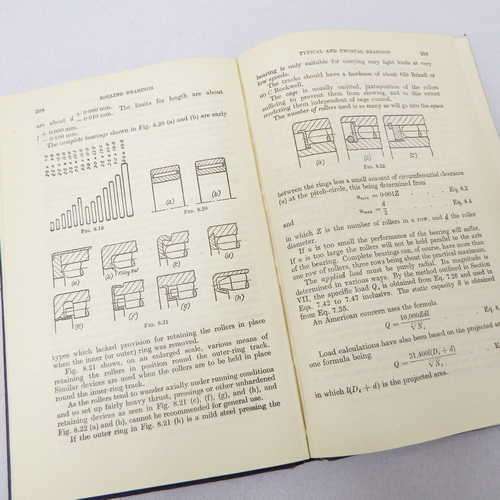 208
ROLLING BEARINGS
are about d + 0·000 mm. The limits for length are about
l + 0·000 mm.
The complete bearings shown in Fig. 8.20 (a) and (b) are early
FIG. 8.19
(a)
(b)
FIG. 8.20
(a)
(c)
(e)
(g)
(h)
FIG. 8.21
types which lacked provision for retaining the rollers in place
when the inner (or outer) ring was removed.
Fig. 8.21 shows, on an enlarged scale, various means of
retaining the rollers in position round the outer-ring track.
Similar devices are used when the rollers are to be held in place
round the inner-ring track.
As the rollers tend to wander axially under running conditions
and so set up fairly heavy thrust, pressings or other unhardened
retaining devices as seen in Fig. 8.21 (e), (f), (g), and (h), and
Fig. 8.22 (a) and (b), cannot be recommended for general use.
If the outer ring in Fig. 8.21 (h) is a mild steel pressing the
TYPICAL AND UNUSUAL BEARINGS
bearing is only suitable for carrying very light loads at very
low speeds.
The tracks should have a hardness of about 650 Brinell or
C Rockwell.
The cage is usually omitted, juxtaposition of the rollers
sufficing to prevent them from skewing, and to this extent
rendering them independent of cage control.
The number of rollers used is as many as will go into the space
(a)
(b)
(c)
FIG. 8.22
between the rings less a small amount of circumferential clearance
(u) at the pitch-circle, this being determined from
= 0·001Z
Eq. 8.2
and
Eq. 8.3
in which Z is the number of rollers in a row, and d the roller
diameter.
If u is too small the performance of the bearing will suffer.
If u is too large the rollers will not be held parallel to the axis
of the bearing. Complete bearings can, of course, have more than
one row of rollers, three rows being about the practical maximum.
The applied load must be purely radial. Its magnitude is
determined in various ways. By the method outlined in Section
VII, the specific load Q, is obtained from Eq. 7.26 and used in
Eqs. 7.42 to 7.47 inclusive. The static capacity S is obtained
from Eq. 7.35.
An American concern uses the formula
Load calculations have also been based on the projected
one formula being
in which l(Di + d) is the projected area.